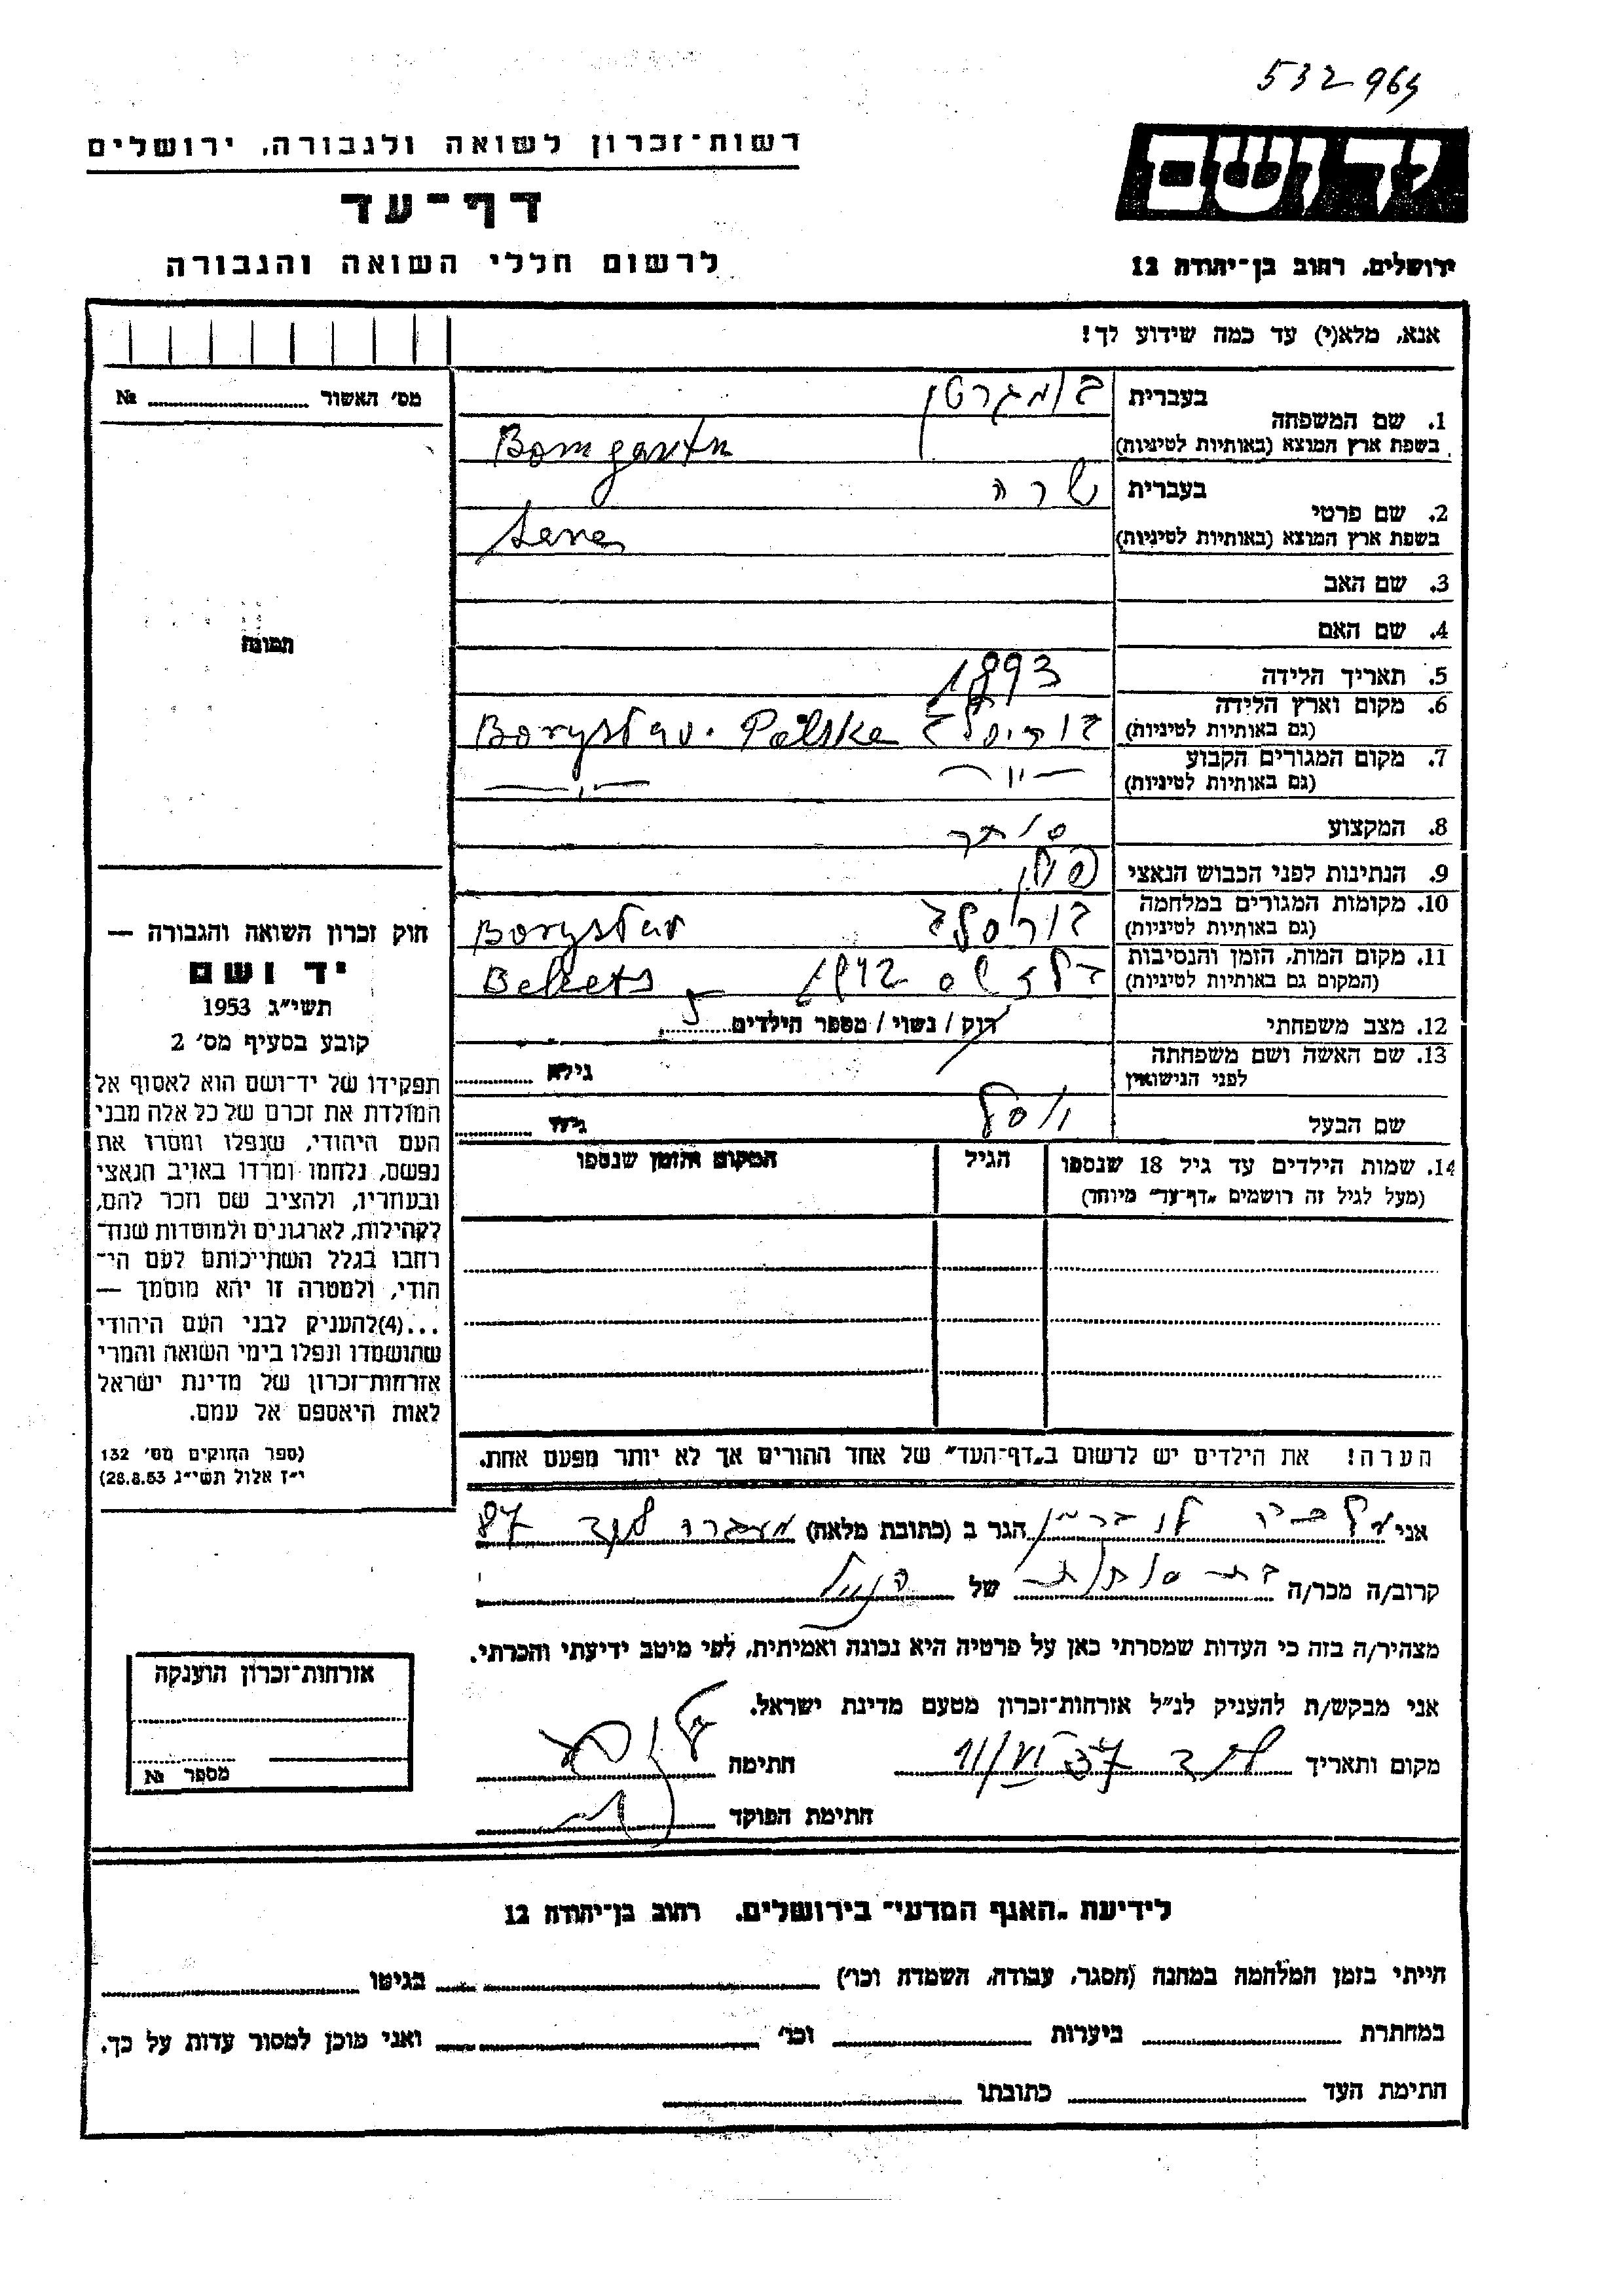 532964
רשות-זכרון לשואה ולגבורה, ירושלים
יד ושם
דף-עד
לרשום חללי השואה והגבורה
ירושלים, רחוב בן-יהודה 12
אנא, מלא(י) עד כמה שידוע לך!
מס' האשור № 
1. שם המשפחה
בעברית בומגרטן
בשפת ארץ המוצא (באותיות לטיניות) Bomgartn
2. שם פרטי
בעברית שרה
בשפת ארץ המוצא (באותיות לטיניות)
3. שם האב
4. שם האם
תמונה
5. תאריך הלידה 1893
6. מקום וארץ הלידה
(גם באותיות לטיניות) בוריסלב Boryslav. Polska
7. מקום המגורים הקבוע
(גם באותיות לטיניות) —״— —״—
8. המקצוע סוחר
9. הנתינות לפני הכבוש הנאצי
10. מקומות המגורים במלחמה
(גם באותיות לטיניות) בוריסלב Boryslav
11. מקום המות, הזמן והנסיבות
(המקום גם באותיות לטיניות) 1942
12. מצב משפחתי רוק / נשוי / מספר הילדים 5
13. שם האשה ושם משפחתה
לפני הנישואין גילא
שם הבעל יוסף גילו
14. שמות הילדים עד גיל 18 שנספו הגיל המקום והזמן שנספו
(מעל לגיל זה רושמים "דף-עד" מיוחד)
חוק זכרון השואה והגבורה —
יד ושם
תשי״ג 1953
קובע בסעיף מס' 2
תפקידו של יד-ושם הוא לאסוף אל
המולדת את זכרם של כל אלה מבני
העם היהודי, שנפלו ומסרו את
נפשם, נלחמו ומרדו באויב הנאצי
ובעוזריו, ולהציב שם וזכר להם,
לקהילות, לארגונים ולמוסדות שנח-
רבו בגלל השתייכותם לעם הי-
הודי, ולמטרה זו יהא מוסמך —
...(4)להעניק לבני העם היהודי
שהושמדו ונפלו בימי השואה והמרי
אזרחות-זכרון של מדינת ישראל
לאות היאספם אל עמם.
(ספר החוקים מס' 132
י״ז אלול תשי״ג 28.8.53)
הערה! את הילדים יש לרשום ב"דף-העד" של אחד ההורים אך לא יותר מפעם אחת.
אני הגר ב (כתובת מלאה) מעברה
קרוב/ה מכר/ה של הנ״ל
מצהיר/ה בזה כי העדות שמסרתי כאן על פרטיה היא נכונה ואמיתית, לפי מיטב ידיעתי והכרתי.
אני מבקש/ת להעניק לנ״ל אזרחות-זכרון מטעם מדינת ישראל.
מקום ותאריך חתימה
חתימת הפוקד
אזרחות-זכרון הוענקה
מספר №
לידיעת "האגף המדעי" בירושלים. רחוב בן-יהודה 12
הייתי בזמן המלחמה במחנה (הסגר, עבודה, השמדה וכו') בגיטו
במחתרת ביערות וכו' ואני מוכן למסור עדות על כך.
חתימת העד כתובתו